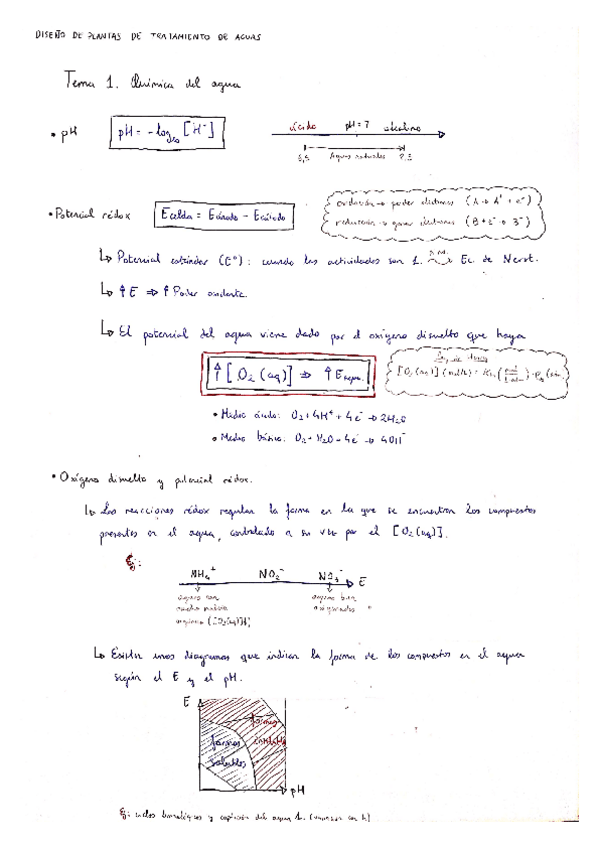 DISEÑO DE PLANTAS DE TRATAMIENTO DE AGUAS
Tema 1. Química del agua
• pH
pH = -log₁₀ [H⁺]
ácido pH = 7 alcalino
6,5 Aguas naturales 8,5
• Potencial rédox
Ecelda = Ecátodo - Eánodo
oxidación → perder electrones (A → A⁺ + e⁻)
reducción → ganar electrones (B + e⁻ → B⁻)
↳ Potencial estándar (E°): cuando las actividades son 1. Ec. de Nerst.
↳ ↑E ⇒ ↑Poder oxidante.
↳ El potencial del agua viene dado por el oxígeno disuelto que haya
↑[O₂(aq)] ⇒ ↑Eagua.
[O₂(aq)]
• Medio ácido: O₂ + 4H⁺ + 4e⁻ → 2H₂O
• Medio básico: O₂ + H₂O + 4e⁻ → 4OH⁻
• Oxígeno disuelto y potencial rédox.
↳ Las reacciones rédox regulan la forma en la que se encuentran los compuestos
presentes en el agua, controlado a su vez por el [O₂(aq)].
Ej:
NH₄⁺ NO₂⁻ NO₃⁻ E
aguas con aguas bien
mucha materia oxigenadas
orgánica (↓[O₂(aq)])
↳ Existen unos diagramas que indican la forma de los compuestos en el agua
según el E y el pH.
E
formas
insolubles
formas
solubles
pH
Ej: ciclos biológicos y del agua